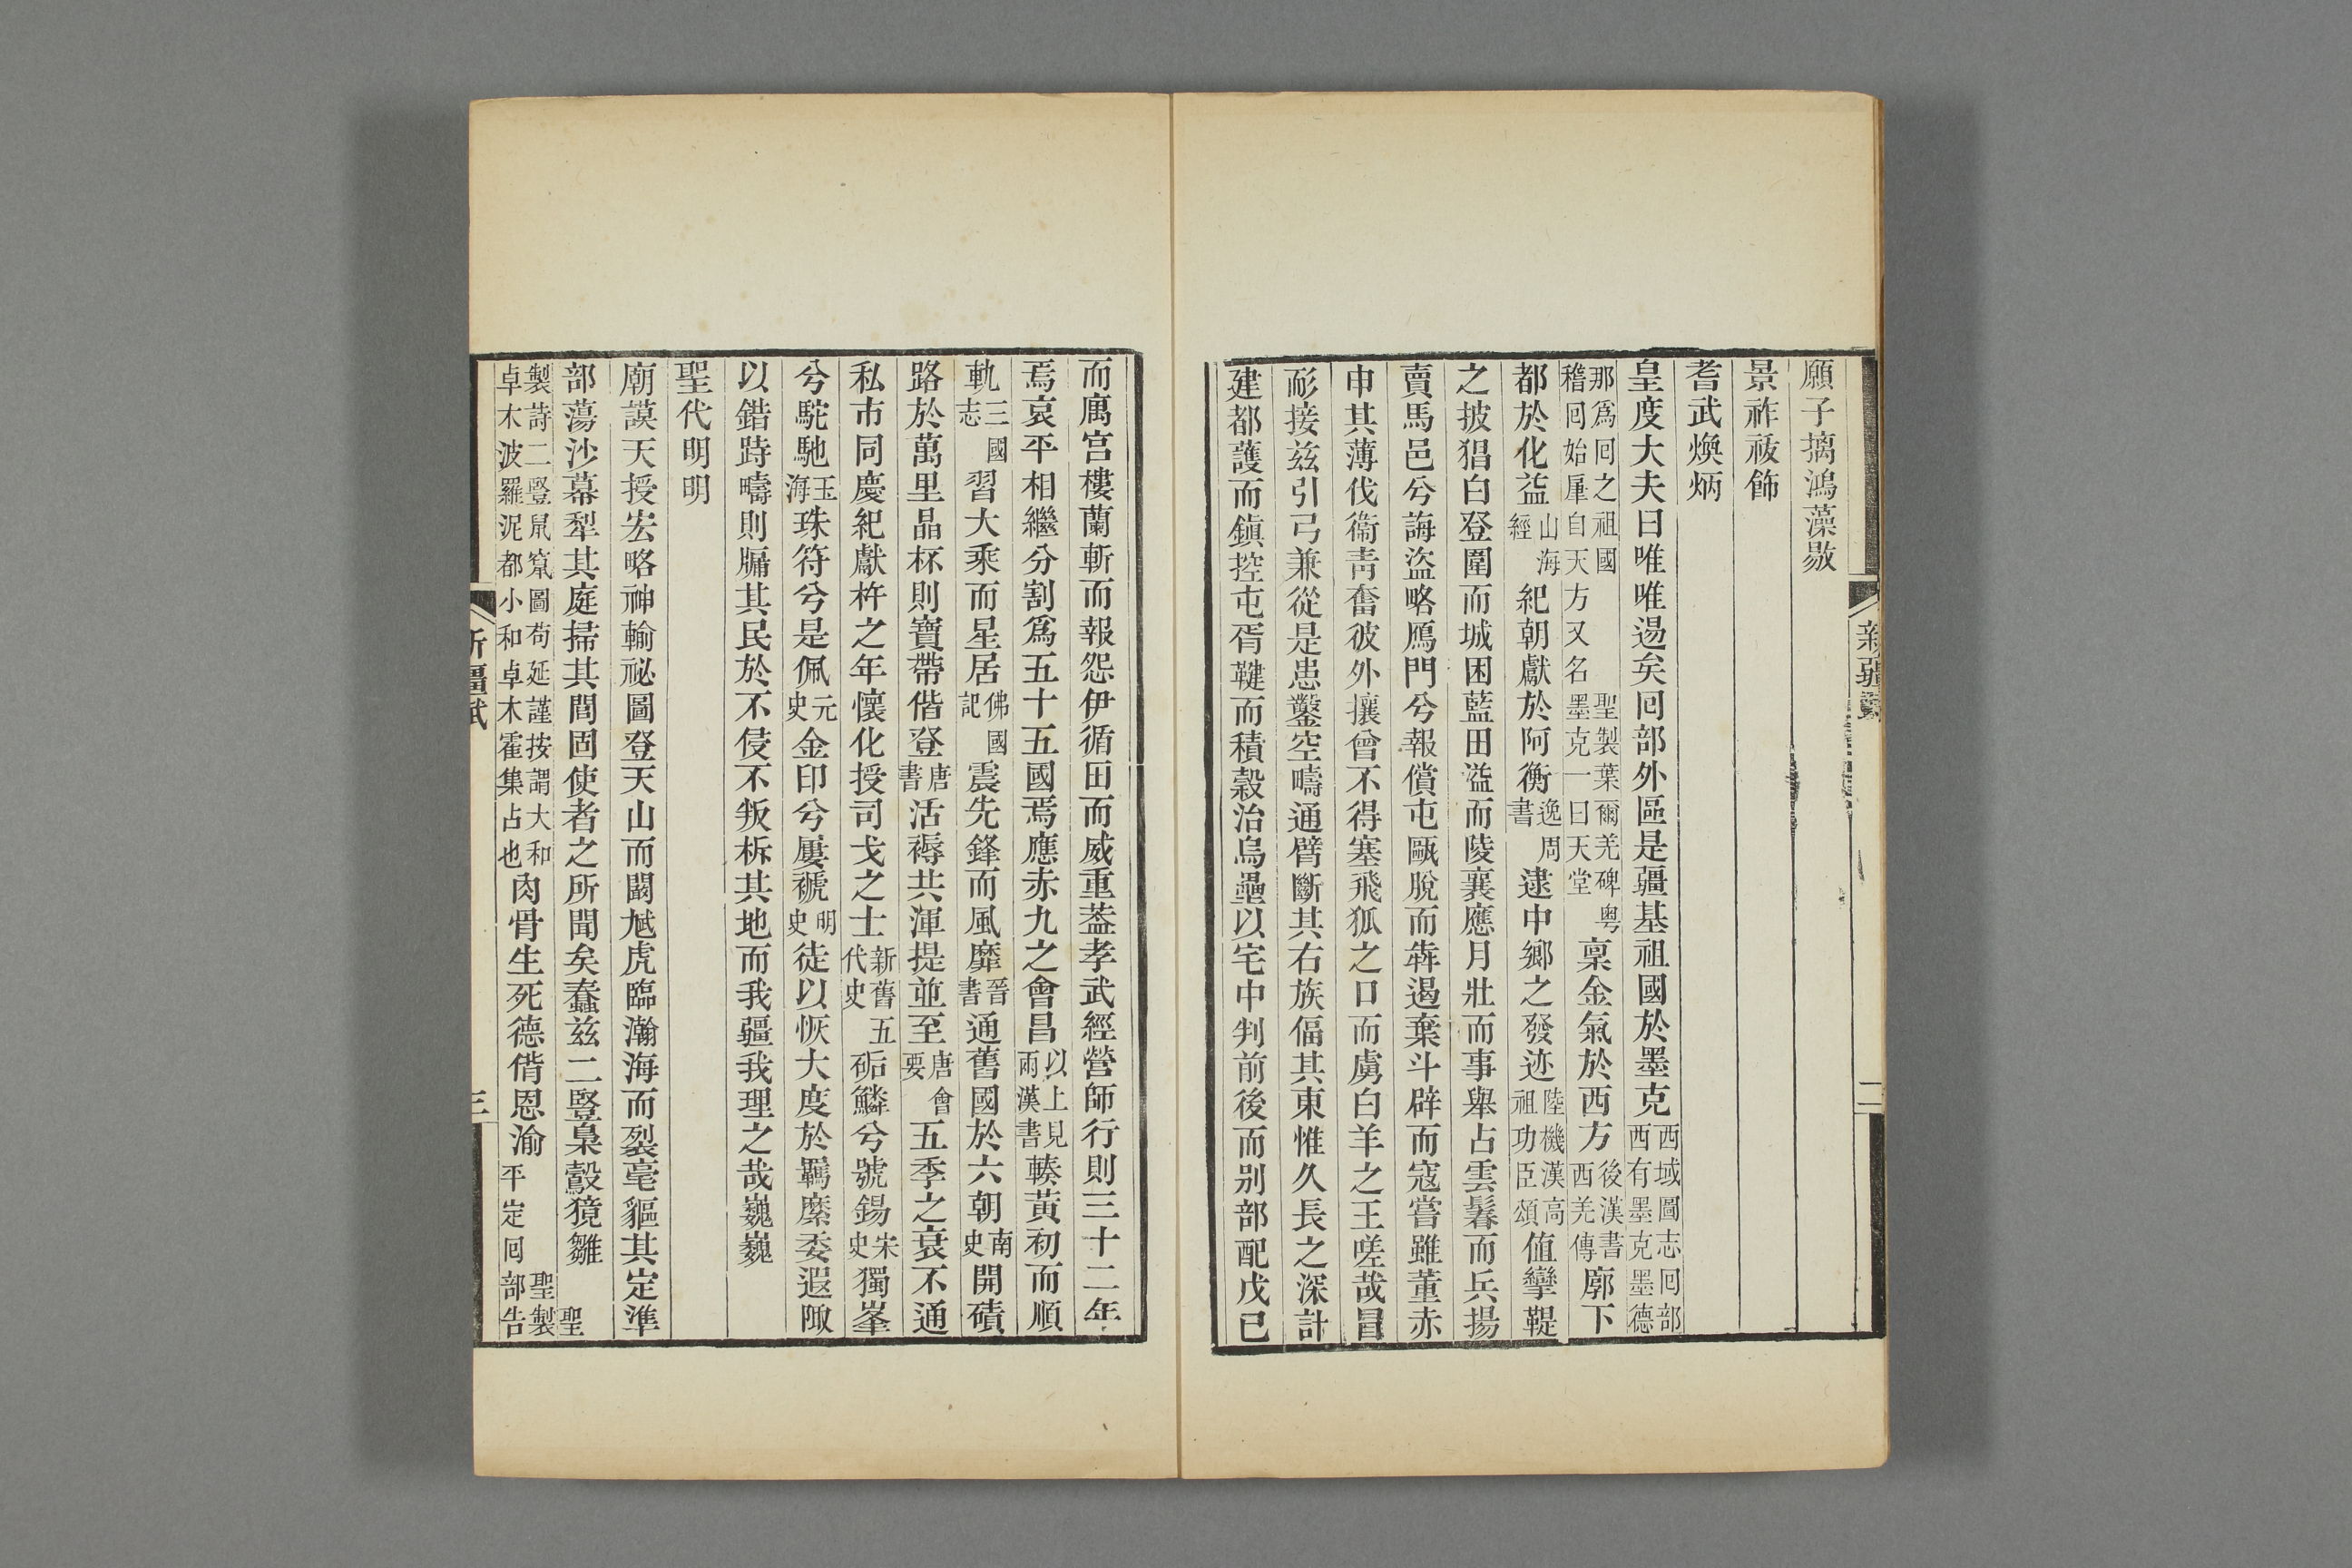 新疆賦
二
願子摛鴻藻敭
景祚祓飾
耆武煥炳
皇度大夫曰唯唯逿矣回部外區是疆基祖國於墨克西域圖志回部西有墨克墨德
那爲回之祖國 聖製葉爾羌碑粤稽回始厘自天方又名墨克一曰天堂稟金氣於西方後漢書西羌傳廓下
都於化益山海經紀朝獻於阿衡逸周書逮中鄉之發迹陸機漢高祖功臣頌値攣鞮
之披猖白登圍而城困藍田溢而陵襄應月壯而事舉占雲鬊而兵揚
賣馬邑兮誨盜略鴈門兮報償屯甌脫而犇遏棄斗辟而寇嘗雖董赤
申其薄伐衞靑奮彼外攘曾不得塞飛狐之口而虜白羊之王嗟哉冒
耏接兹引弓兼從是患鑿空疇通臂斷其右族偪其東惟久長之深計
建都護而鎭控屯胥鞬而積穀治烏壘以宅中判前後而别部配戊已
而厲宫樓蘭斬而報怨伊循田而威重葢孝武經營師行則三十二年
焉哀平相繼分割爲五十五國焉應赤九之會昌以上見兩漢書輳黃初而順
軌三國志習大乘而星居佛國記震先鋒而風靡晉書通舊國於六朝南史開磧
路於萬里晶杯則寶帶偕登唐書活褥共渾提並至唐會要五季之衰不通
私市同慶紀獻杵之年懷化授司戈之士新舊五代史砳鱗兮號錫宋史獨峯
兮駝馳玉海珠符兮是佩元史金印兮屢褫明史徒以恢大度於羈縻委遐陬
以錯跱疇則牖其民於不侵不叛柝其地而我疆我理之哉巍巍
聖代明明
廟謨天授宏略神輸祕圖登天山而闞虓虎臨瀚海而裂毫貙其定準
部蕩沙幕犁其庭掃其閭固使者之所聞矣蠢兹二豎梟鷇獍雛聖
製詩二豎鼠竄圖苟延謹按謂大和卓木波羅泥都小和卓木霍集占也肉骨生死德偕恩渝聖製平定回部告
新疆賦
三